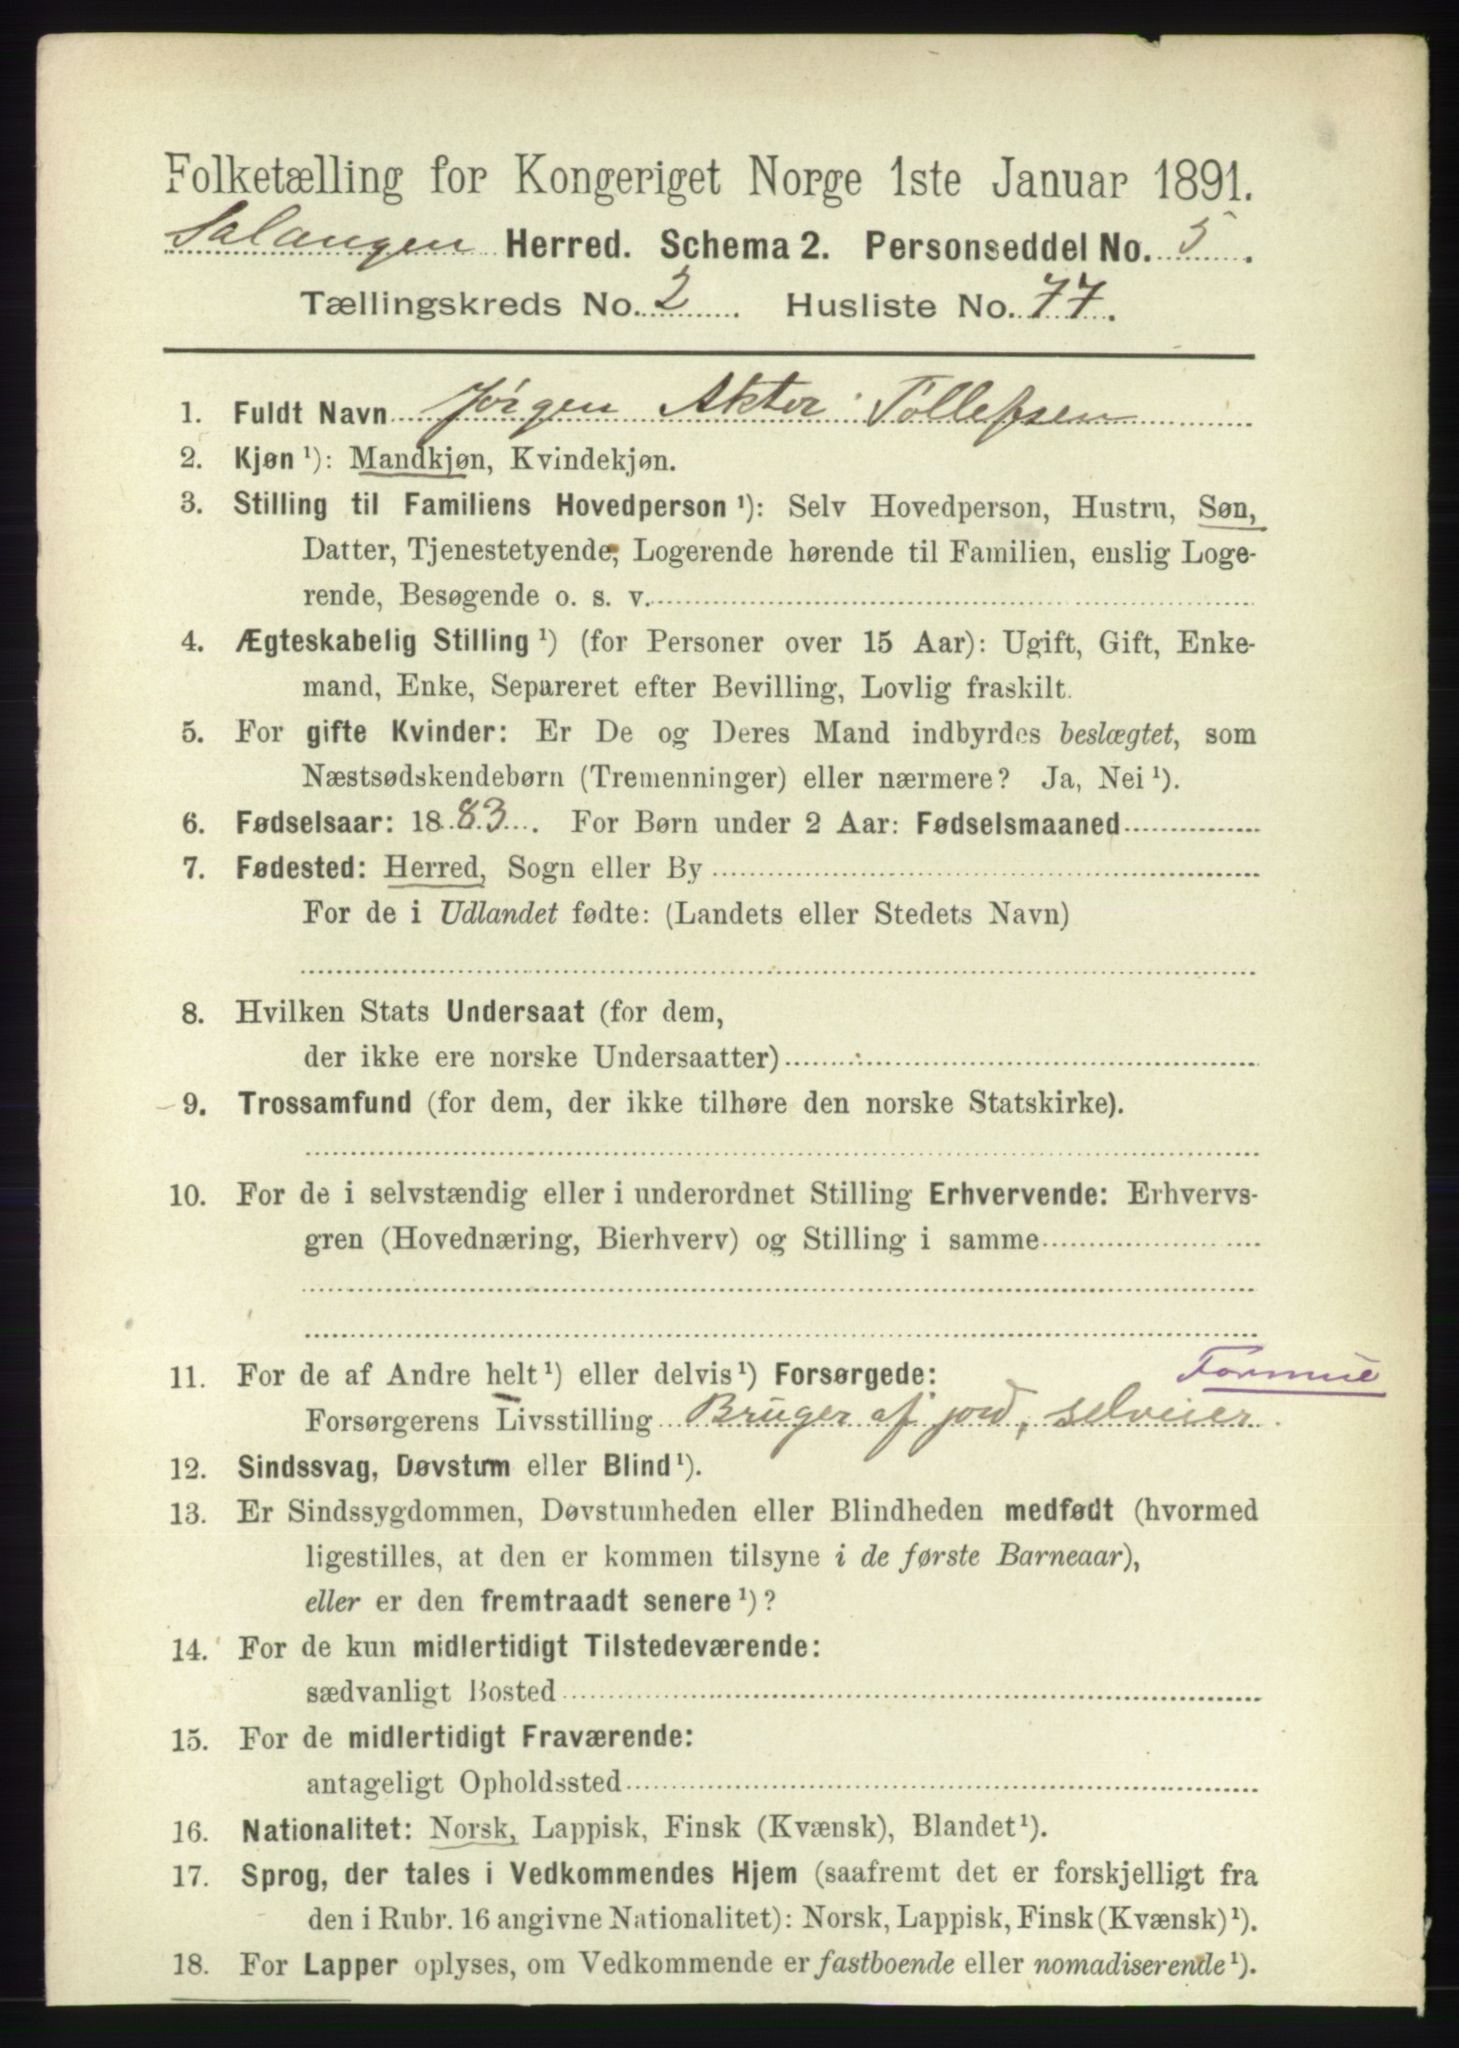 Folketælling for Kongeriget Norge 1ste Januar 1891.
Salangen Herred. Schema 2. Personseddel No. 5.
Tællingskreds No. 2. Husliste No. 77.
1. Fuldt Navn Jørgen Aktor Tollefsen
2. Kjøn ¹): Mandkjøn, Kvindekjøn.
3. Stilling til Familiens Hovedperson ¹): Selv Hovedperson, Hustru, Søn,
Datter, Tjenestetyende, Logerende hørende til Familien, enslig Loge-
rende, Besøgende o. s. v.
4. Ægteskabelig Stilling ¹) (for Personer over 15 Aar): Ugift, Gift, Enke-
mand, Enke, Separeret efter Bevilling, Lovlig fraskilt.
5. For gifte Kvinder: Er De og Deres Mand indbyrdes beslægtet, som
Næstsødskendebørn (Tremenninger) eller nærmere? Ja, Nei ¹).
6. Fødselsaar: 1883. For Børn under 2 Aar: Fødselsmaaned
7. Fødested: Herred, Sogn eller By
For de i Udlandet fødte: (Landets eller Stedets Navn)
8. Hvilken Stats Undersaat (for dem,
der ikke ere norske Undersaatter)
9. Trossamfund (for dem, der ikke tilhøre den norske Statskirke).
10. For de i selvstændig eller i underordnet Stilling Erhvervende: Erhvervs-
gren (Hovednæring, Bierhverv) og Stilling i samme
Formue
11. For de af Andre helt ¹) eller delvis ¹) Forsørgede:
Forsørgerens Livsstilling Bruger af jord, selveier.
12. Sindssvag, Døvstum eller Blind ¹).
13. Er Sindssygdommen, Døvstumheden eller Blindheden medfødt (hvormed
ligestilles, at den er kommen tilsyne i de første Barneaar),
eller er den fremtraadt senere ¹)?
14. For de kun midlertidigt Tilstedeværende:
sædvanligt Bosted
15. For de midlertidigt Fraværende:
antageligt Opholdssted
16. Nationalitet: Norsk, Lappisk, Finsk (Kvænsk), Blandet ¹).
17. Sprog, der tales i Vedkommendes Hjem (saafremt det er forskjelligt fra
den i Rubr. 16 angivne Nationalitet): Norsk, Lappisk, Finsk (Kvænsk) ¹).
18. For Lapper oplyses, om Vedkommende er fastboende eller nomadiserende ¹).